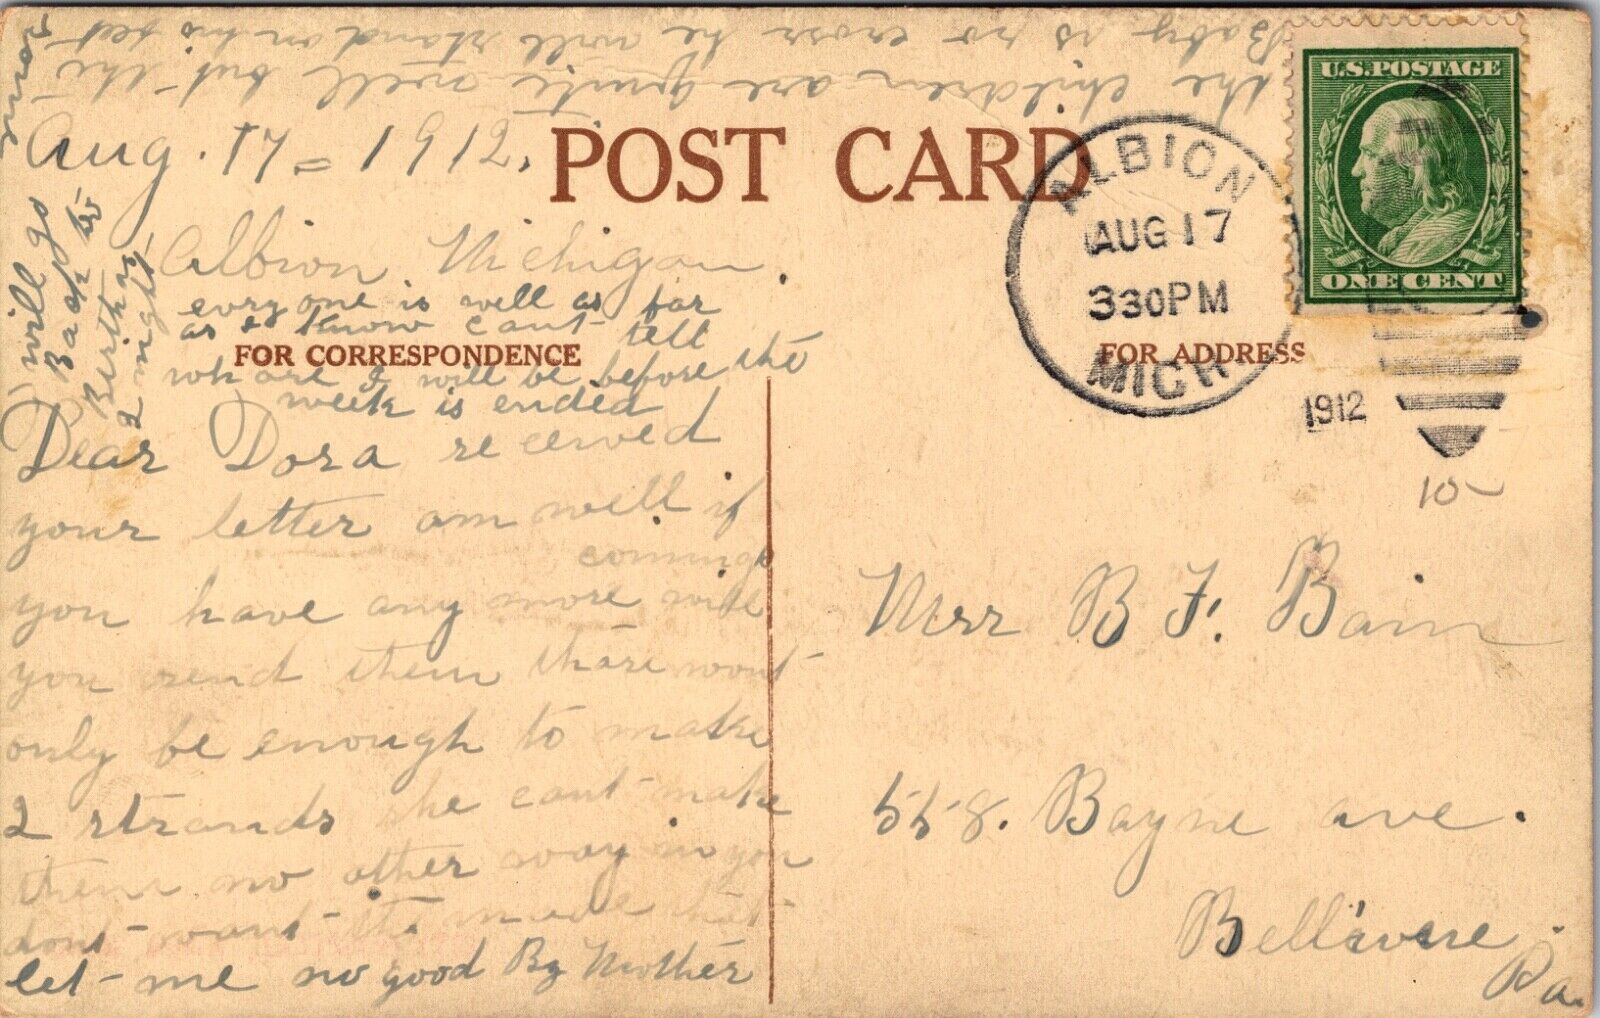 the children are quite well but the
Baby is so cross he will stand on his feet
some
Aug. 17 = 1912.
POST CARD
Albion Michigan.
every one is well as far
as I know cant tell
FOR CORRESPONDENCE
whare I will be before the
week is ended
I will go
Back to
2 might
Dear Dora received
your letter am well if
comings
you have any more will
you send them thare wont
only be enough to make
2 strands she cant make
them no other way so you
dont want to made that
let me no good By Mother
ALBION
AUG 17
330PM
MICH.
1912
U.S. POSTAGE
ONE CENT
FOR ADDRESS
10
Mrs B. F. Bain
558. Bayne ave.
Bellevue
Pa.